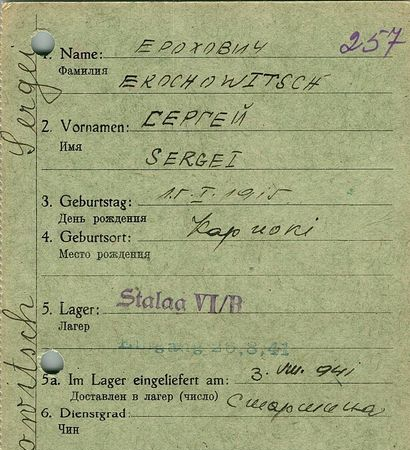 257
1. Name: ЕРОХОВИЧ
Фамилия
EROCHOWITSCH
2. Vornamen: СЕРГЕЙ
Имя
SERGEI
3. Geburtstag: 15. I. 1915
День рождения
4. Geburtsort:
Место рождения
5. Lager: Stalag VI/B
Лагерь
26,8,41
5a. Im Lager eingeliefert am: 3. VIII. 941
Доставлен в лагер (число)
6. Dienstgrad Старшина
Чин
Sergei
owitsch